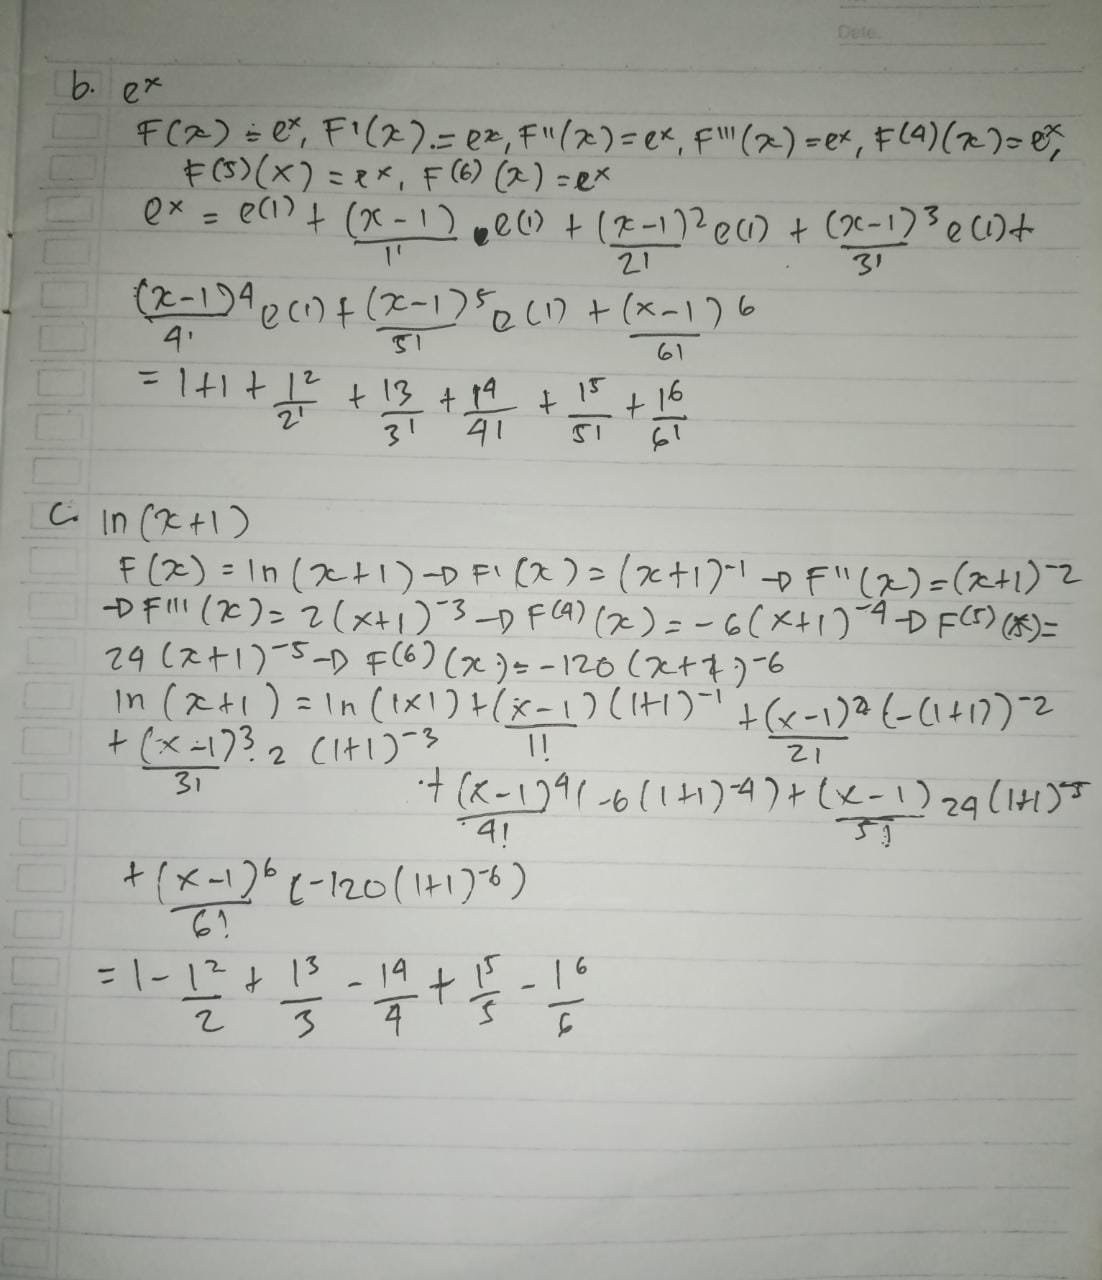 Date.
b. e^x
F(x) = e^x, F'(x) = e^x, F''(x) = e^x, F'''(x) = e^x, F(4)(x) = e^x,
F(5)(x) = e^x, F(6)(x) = e^x
e^x = e(1) + (x-1)/1! . e(1) + (x-1)^2/2! e(1) + (x-1)^3/3! e(1) +
(x-1)^4/4! e(1) + (x-1)^5/5! e(1) + (x-1)^6/6!
= 1+1 + 1^2/2! + 1^3/3! + 1^4/4! + 1^5/5! + 1^6/6!
c. ln (x+1)
F(x) = ln (x+1) → F'(x) = (x+1)^-1 → F''(x) = (x+1)^-2
→ F'''(x) = 2(x+1)^-3 → F(4)(x) = -6(x+1)^-4 → F(5)(x) =
24 (x+1)^-5 → F(6)(x) = -120 (x+1)^-6
ln (x+1) = ln (1x1) + (x-1)/1! (1+1)^-1 + (x-1)^2/2! (-(1+1))^-2
+ (x-1)^3/3! 2 (1+1)^-3
+ (x-1)^4/4! (-6(1+1)^-4) + (x-1)/5! 24 (1+1)^-5
+ (x-1)^6/6! (-120(1+1)^-6)
= 1 - 1^2/2 + 1^3/3 - 1^4/4 + 1^5/5 - 1^6/6